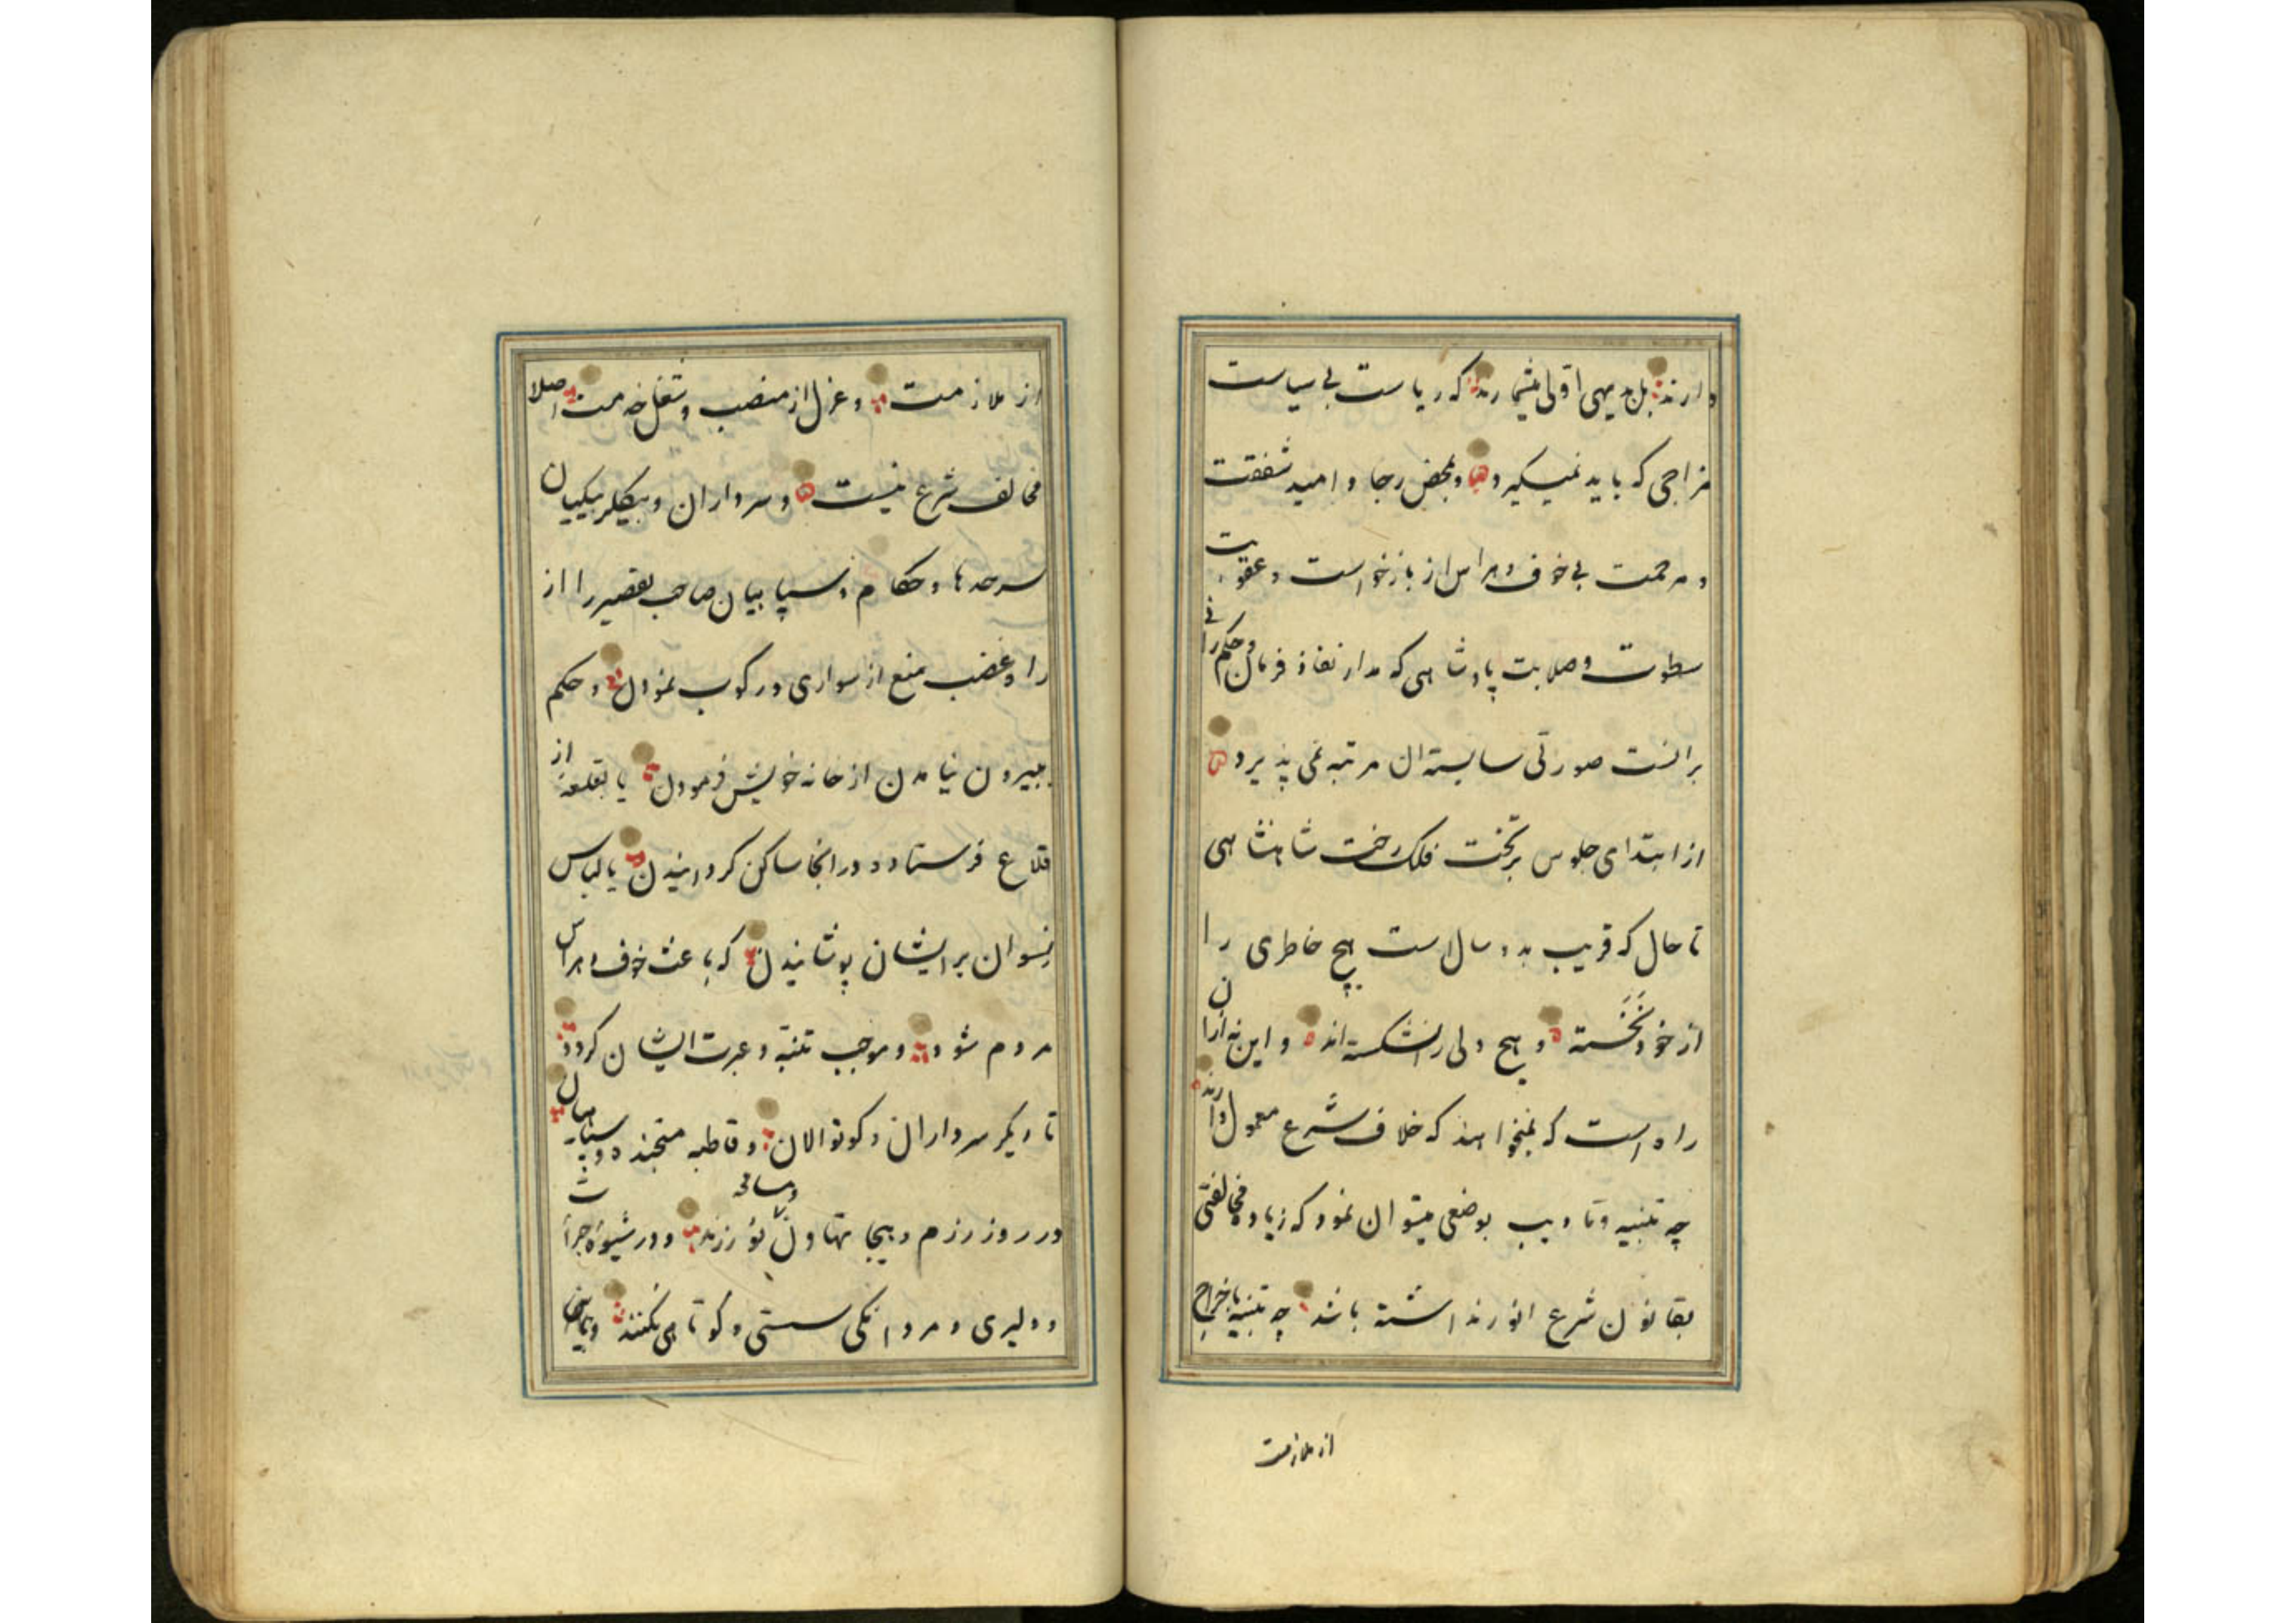 دارند بل بدیهی اولی میشمارند که ریاست بی سیاست
مزاجی که باید نمیگیرد و بمحض رجا و امید شفقت
و مرحمت بی خوف و هراس از بازخواست و عقوبت
سطوت و صلابت پادشاهی که مدار نفاذ فرمان و حکم رانی
برانست صورتی شایسته ان مرتبه نمی پذیرد
از ابتدای جلوس بر تخت فلک رخت شاهنشاهی
تا حال که قریب بدو سال است هیچ خاطری را
از خود نخسته و هیچ دلی را نشکسته اند و این نه از ان
راه است که نمیخواهند که خلاف شرع معمول دارند
چه تنبیه و تادیب بوضعی میتوان نمود که زیاده مخالفتی
بقانون شرع انور نداشته باشد چه تنبیه باخراج
از ملازمت
از ملازمت و عزل از منصب و شغل خدمت اصلا
مخالف شرع نیست و سرداران و بیکلربیکیان
سرحدها و حکام و سپاهیان صاحب تقصیر را از
راه غضب منع از سواری و رکوب نمودن و حکم
ببیرون نیامدن از خانه خویش فرمودن یا بقلعه از
قلاع فرستاده در انجا ساکن کردانیدن یا لباس
نسوان بر ایشان پوشانیدن که باعث خوف و هراس
مردم شود و موجب تنبه و عبرت ایشان کردد
تا دیکر سرداران و کوتوالان و قاطبه متجنده و سپاهیان
در روز رزم و هیجا تهاون و مساهله نورزند و در شیوه جرأت
و دلیری و مردانکی سستی و کوتاهی نکنند